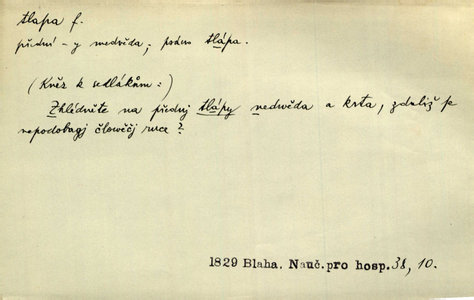 tlapa f.
přední -y medvěda; psáno tlápa.
(Kněz k sedlákům:)
Zhlédněte na přednj tlápy nedwěda a krta, zdaliž se
nepodobagj člowěčj ruce?
1829 Blaha. Nauč. pro hosp. 38, 10.